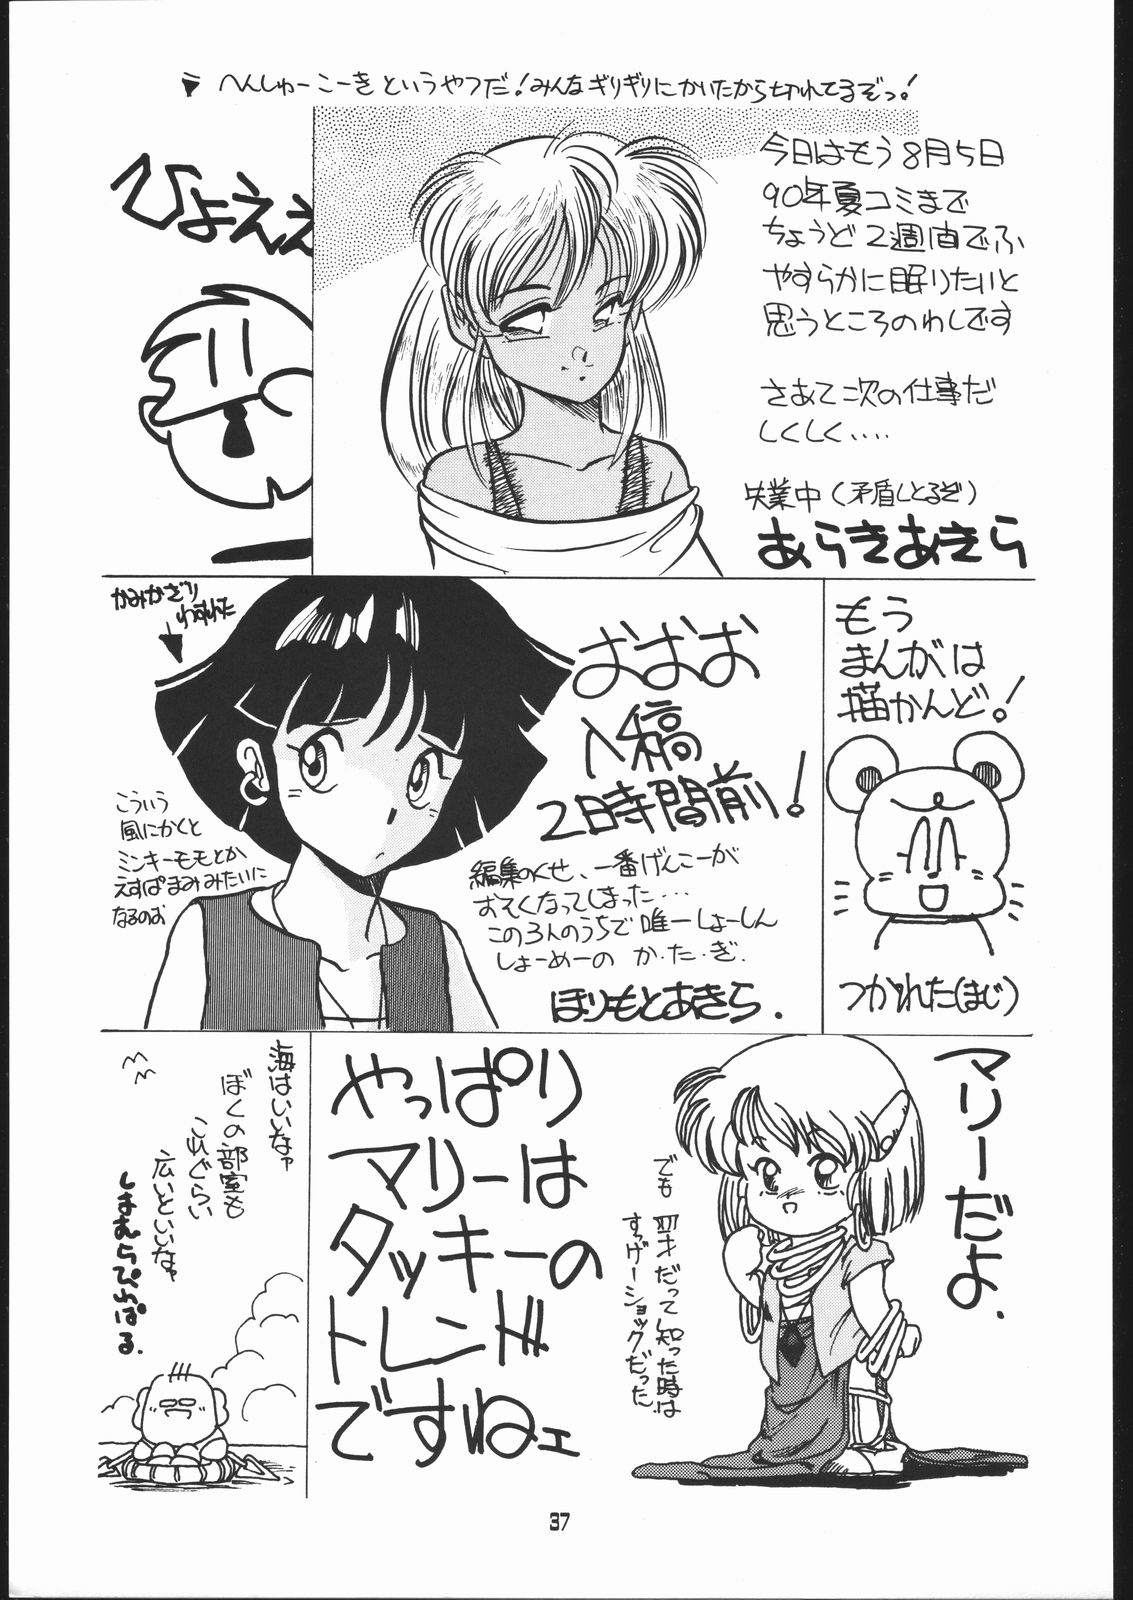 へんしゅーこーきというやつだ!みんなギリギリにかいたから切れてるぞっ!
今日はもう8月5日
90年夏コミまで
ちょうど2週間でふ
やすらかに眠りたいと
思うところのわしです
さあて次の仕事だ
しくしく・・・・
失業中(矛盾しとるぞ)
あらきあきら
ひょええ
かみかざり
わすれた
おおお
入稿
2時間前!
こういう
風にかくと
ミンキーモモとか
えすぱまみみたいに
なるのお
編集のくせ、一番げんこーが
おそくなってしまった・・・
この3人のうちで唯一しょーしん
しょーめーの か・た・ぎ.
ほりもとあきら.
もう
まんがは
描かんど!
つかれた(まじ)
マリーだよ.
でも
だって知った時は
すっげーショックだった
やっぱり
マリーは
タッキーの
トレンド
ですねェ
海はいいなァ
ぼくの部室も
これぐらい
広いといいなァ
しまむらぴんぱる.
37